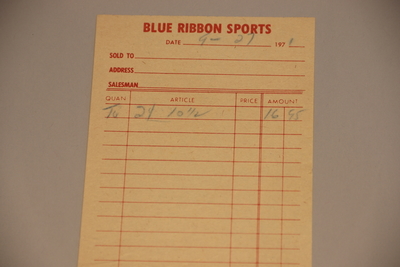 BLUE RIBBON SPORTS
DATE 9-21 1971
SOLD TO
ADDRESS
SALESMAN
QUAN. ARTICLE PRICE AMOUNT
21 10½ 16 95